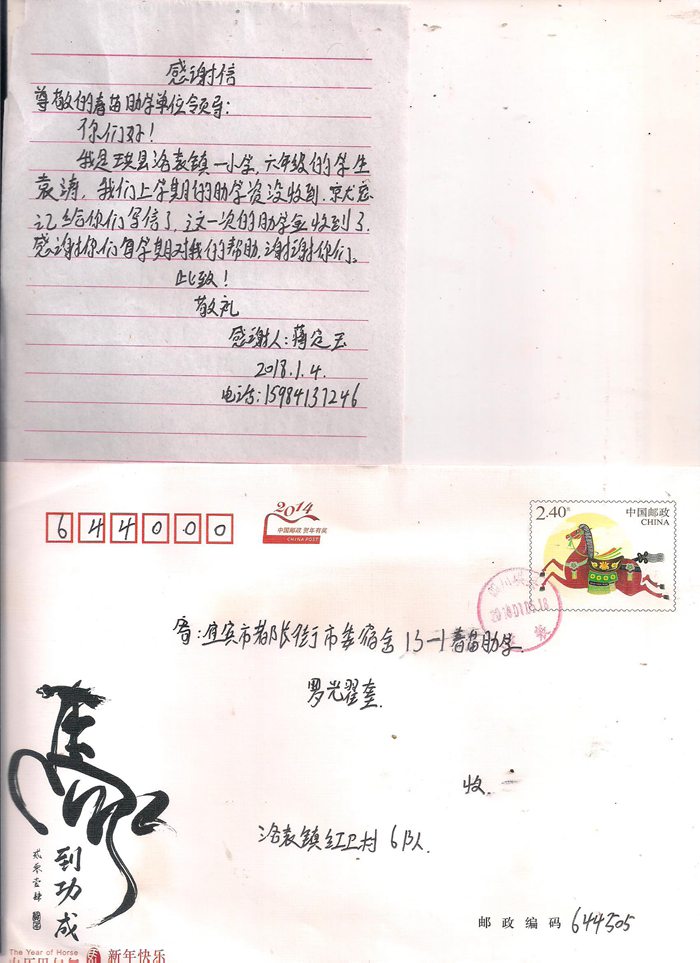 感谢信
尊敬的春苗助学单位领导:
你们好!
我是珙县洛表镇一小学,六年级的学生
袁涛,我们上学期的助学资没收到.就忘
记给你们写信了,这一次的助学金收到了.
感谢你们每学期对我的帮助.谢谢你们。
此致!
敬礼
感谢人:蒋定玉
2018.1.4.
电话:15984137246
644000
2014
中国邮政 贺年有奖
CHINA POST
2.40元
中国邮政
CHINA
寄:宜宾市都长街市委宿舍13-1春苗助学
罗光翟奎.
收.
洛表镇红卫村6队.
马
到功成
贰零壹肆
邮政编码 644505
The Year of Horse
新年快乐